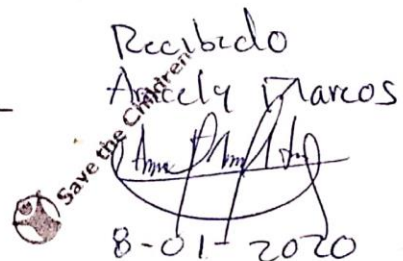 Recibido
Aracely Marcos
Save the Children
8-01-2020